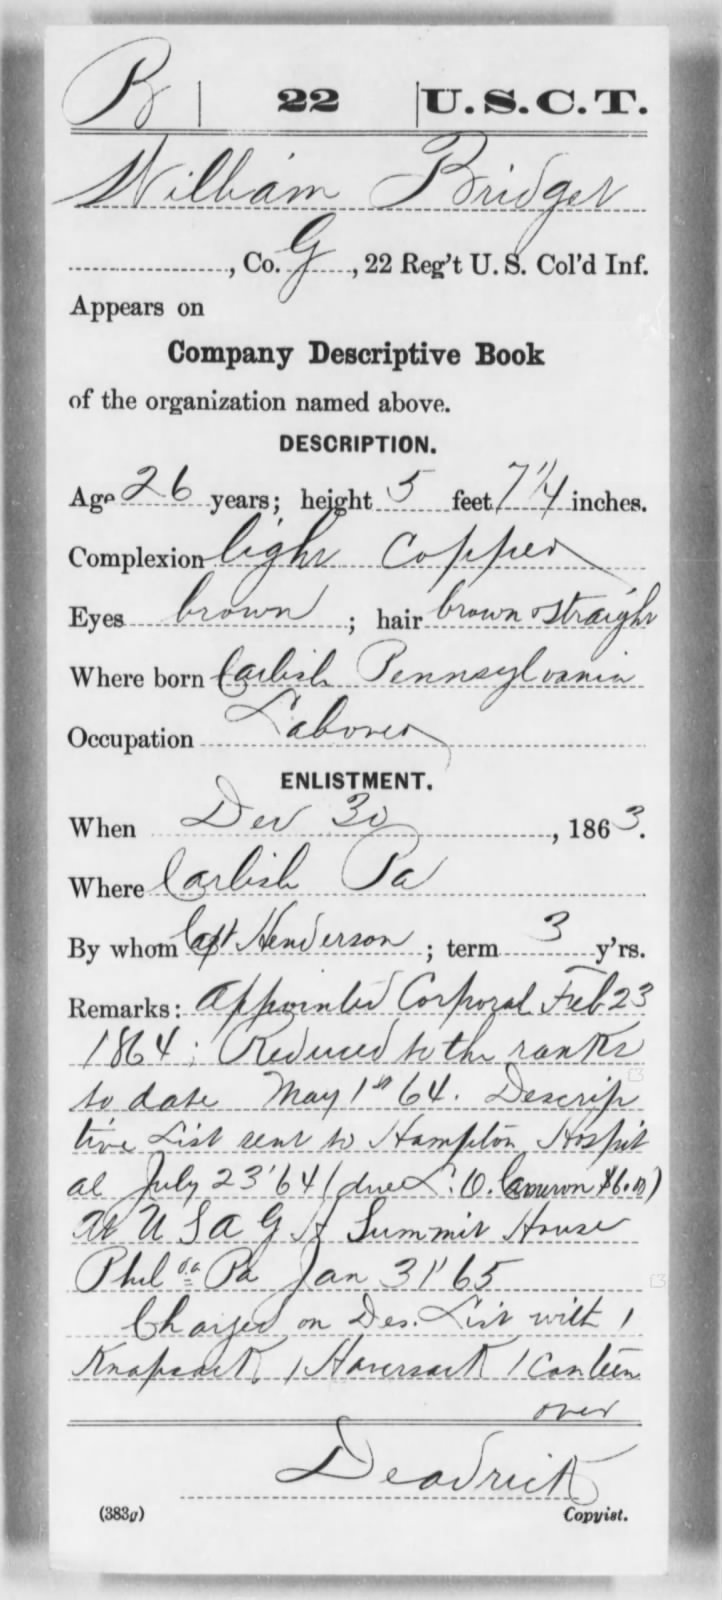 B | 22 | U.S.C.T.
William Bridget
, Co. G, 22 Reg't U. S. Col'd Inf.
Appears on
Company Descriptive Book
of the organization named above.
DESCRIPTION.
Age 26 years; height 5 feet 7 1/4 inches.
Complexion light Copper
Eyes brown; hair brown straight
Where born Carlisle Pennsylvania
Occupation Laborer
ENLISTMENT.
When Dec 30, 1863.
Where Carlisle Pa
By whom Capt Henderson; term 3 y'rs.
Remarks: Appointed Corporal Feb 23
1864; Reduced to the ranks
to date May 1st 64. Descrip
tive List sent to Hampton Hospit
al July 23 '64 (due L. O. Cameron $6.00)
At U S A G H Summit House
Phila Pa Jan 31' 65
Charged on Des. List with 1
Knapsack 1 Haversack 1 Canteen
over
Deadrick
(383g) Copyist.